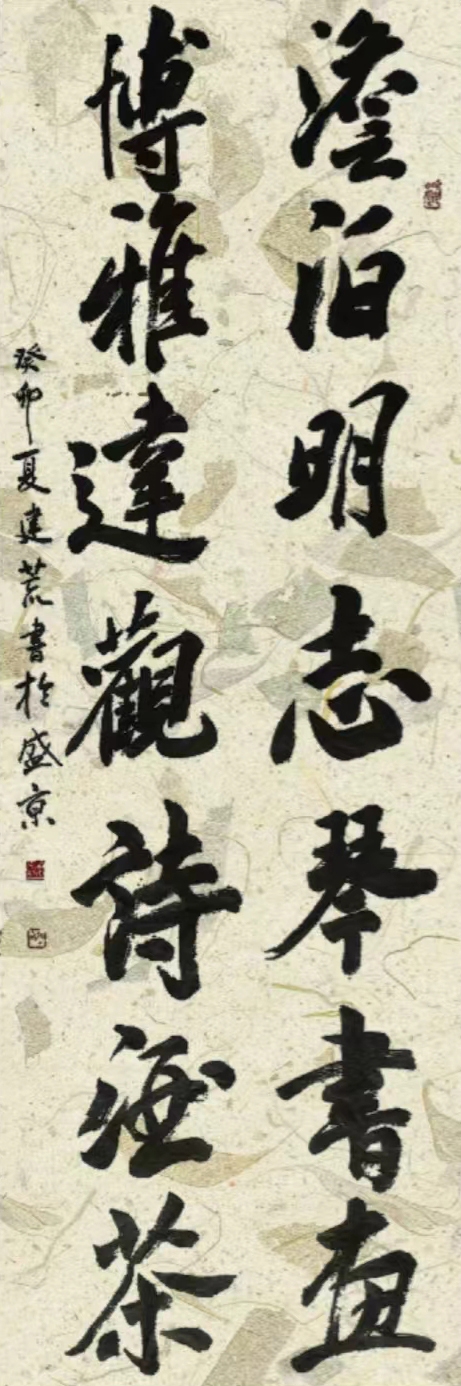 澹泊明志琴書畫
博雅達觀詩酒茶
癸卯夏建荒書於盛京